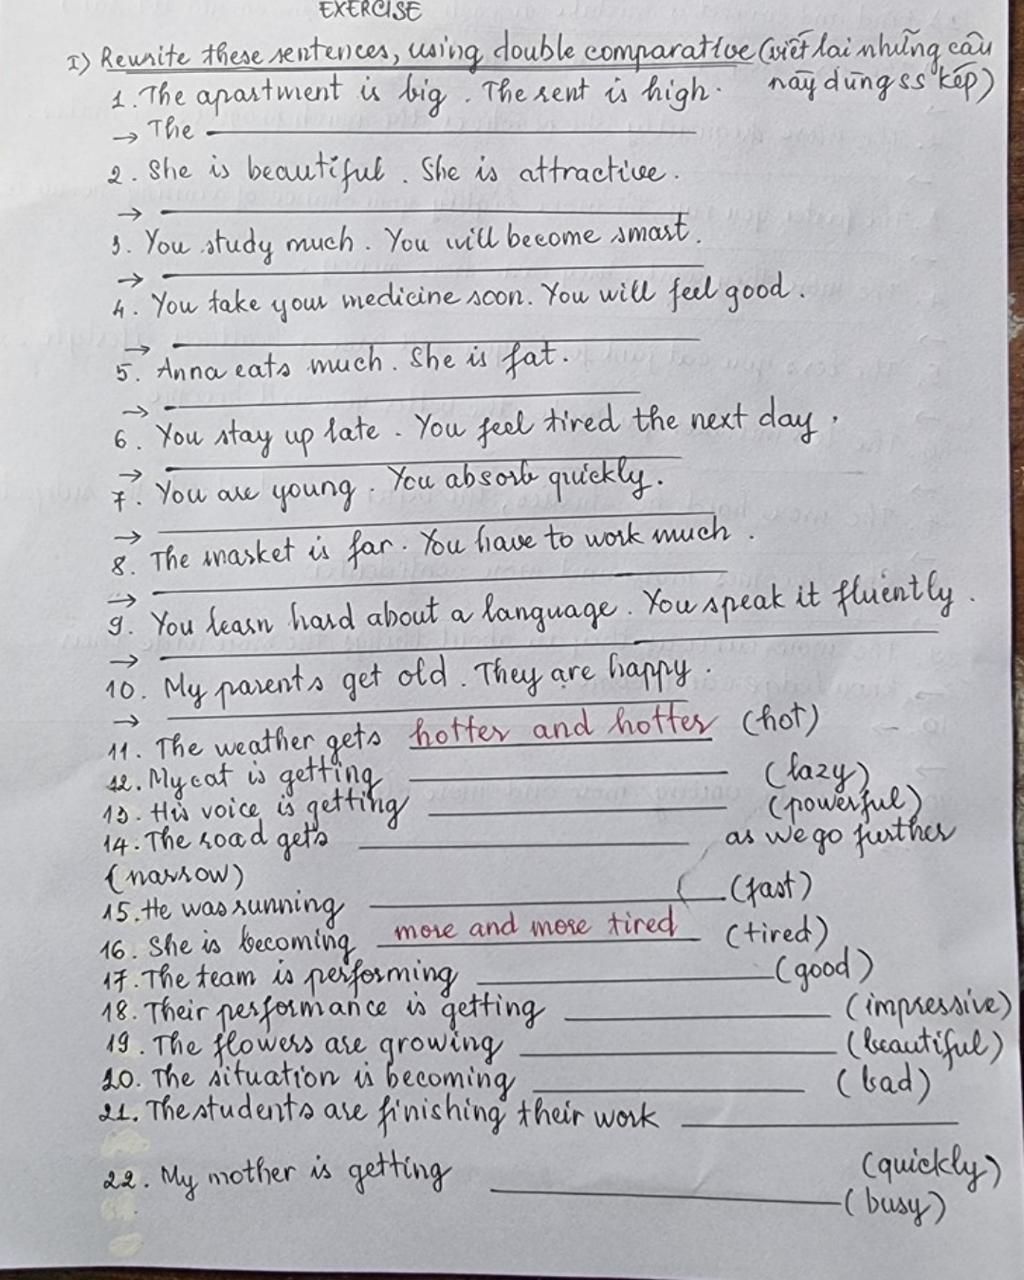 EXERCISE
I) Rewrite these sentences, using double comparative (viết lại những câu
này dùng ss kép)
1. The apartment is big. The rent is high.
→ The
2. She is beautiful. She is attractive.
→
3. You study much. You will become smart.
→
4. You take your medicine soon. You will feel good.
→
5. Anna eats much. She is fat.
→
6. You stay up late. You feel tired the next day.
→
7. You are young. You absorb quickly.
→
8. The market is far. You have to work much.
→
9. You learn hard about a language. You speak it fluently.
→
10. My parents get old. They are happy.
→
11. The weather gets hotter and hotter (hot)
12. My cat is getting (lazy)
13. His voice is getting (powerful)
14. The road gets as we go further
(narrow)
15. He was running (fast)
16. She is becoming more and more tired (tired)
17. The team is performing (good)
18. Their performance is getting (impressive)
19. The flowers are growing (beautiful)
20. The situation is becoming (bad)
21. The students are finishing their work
(quickly)
22. My mother is getting (busy)